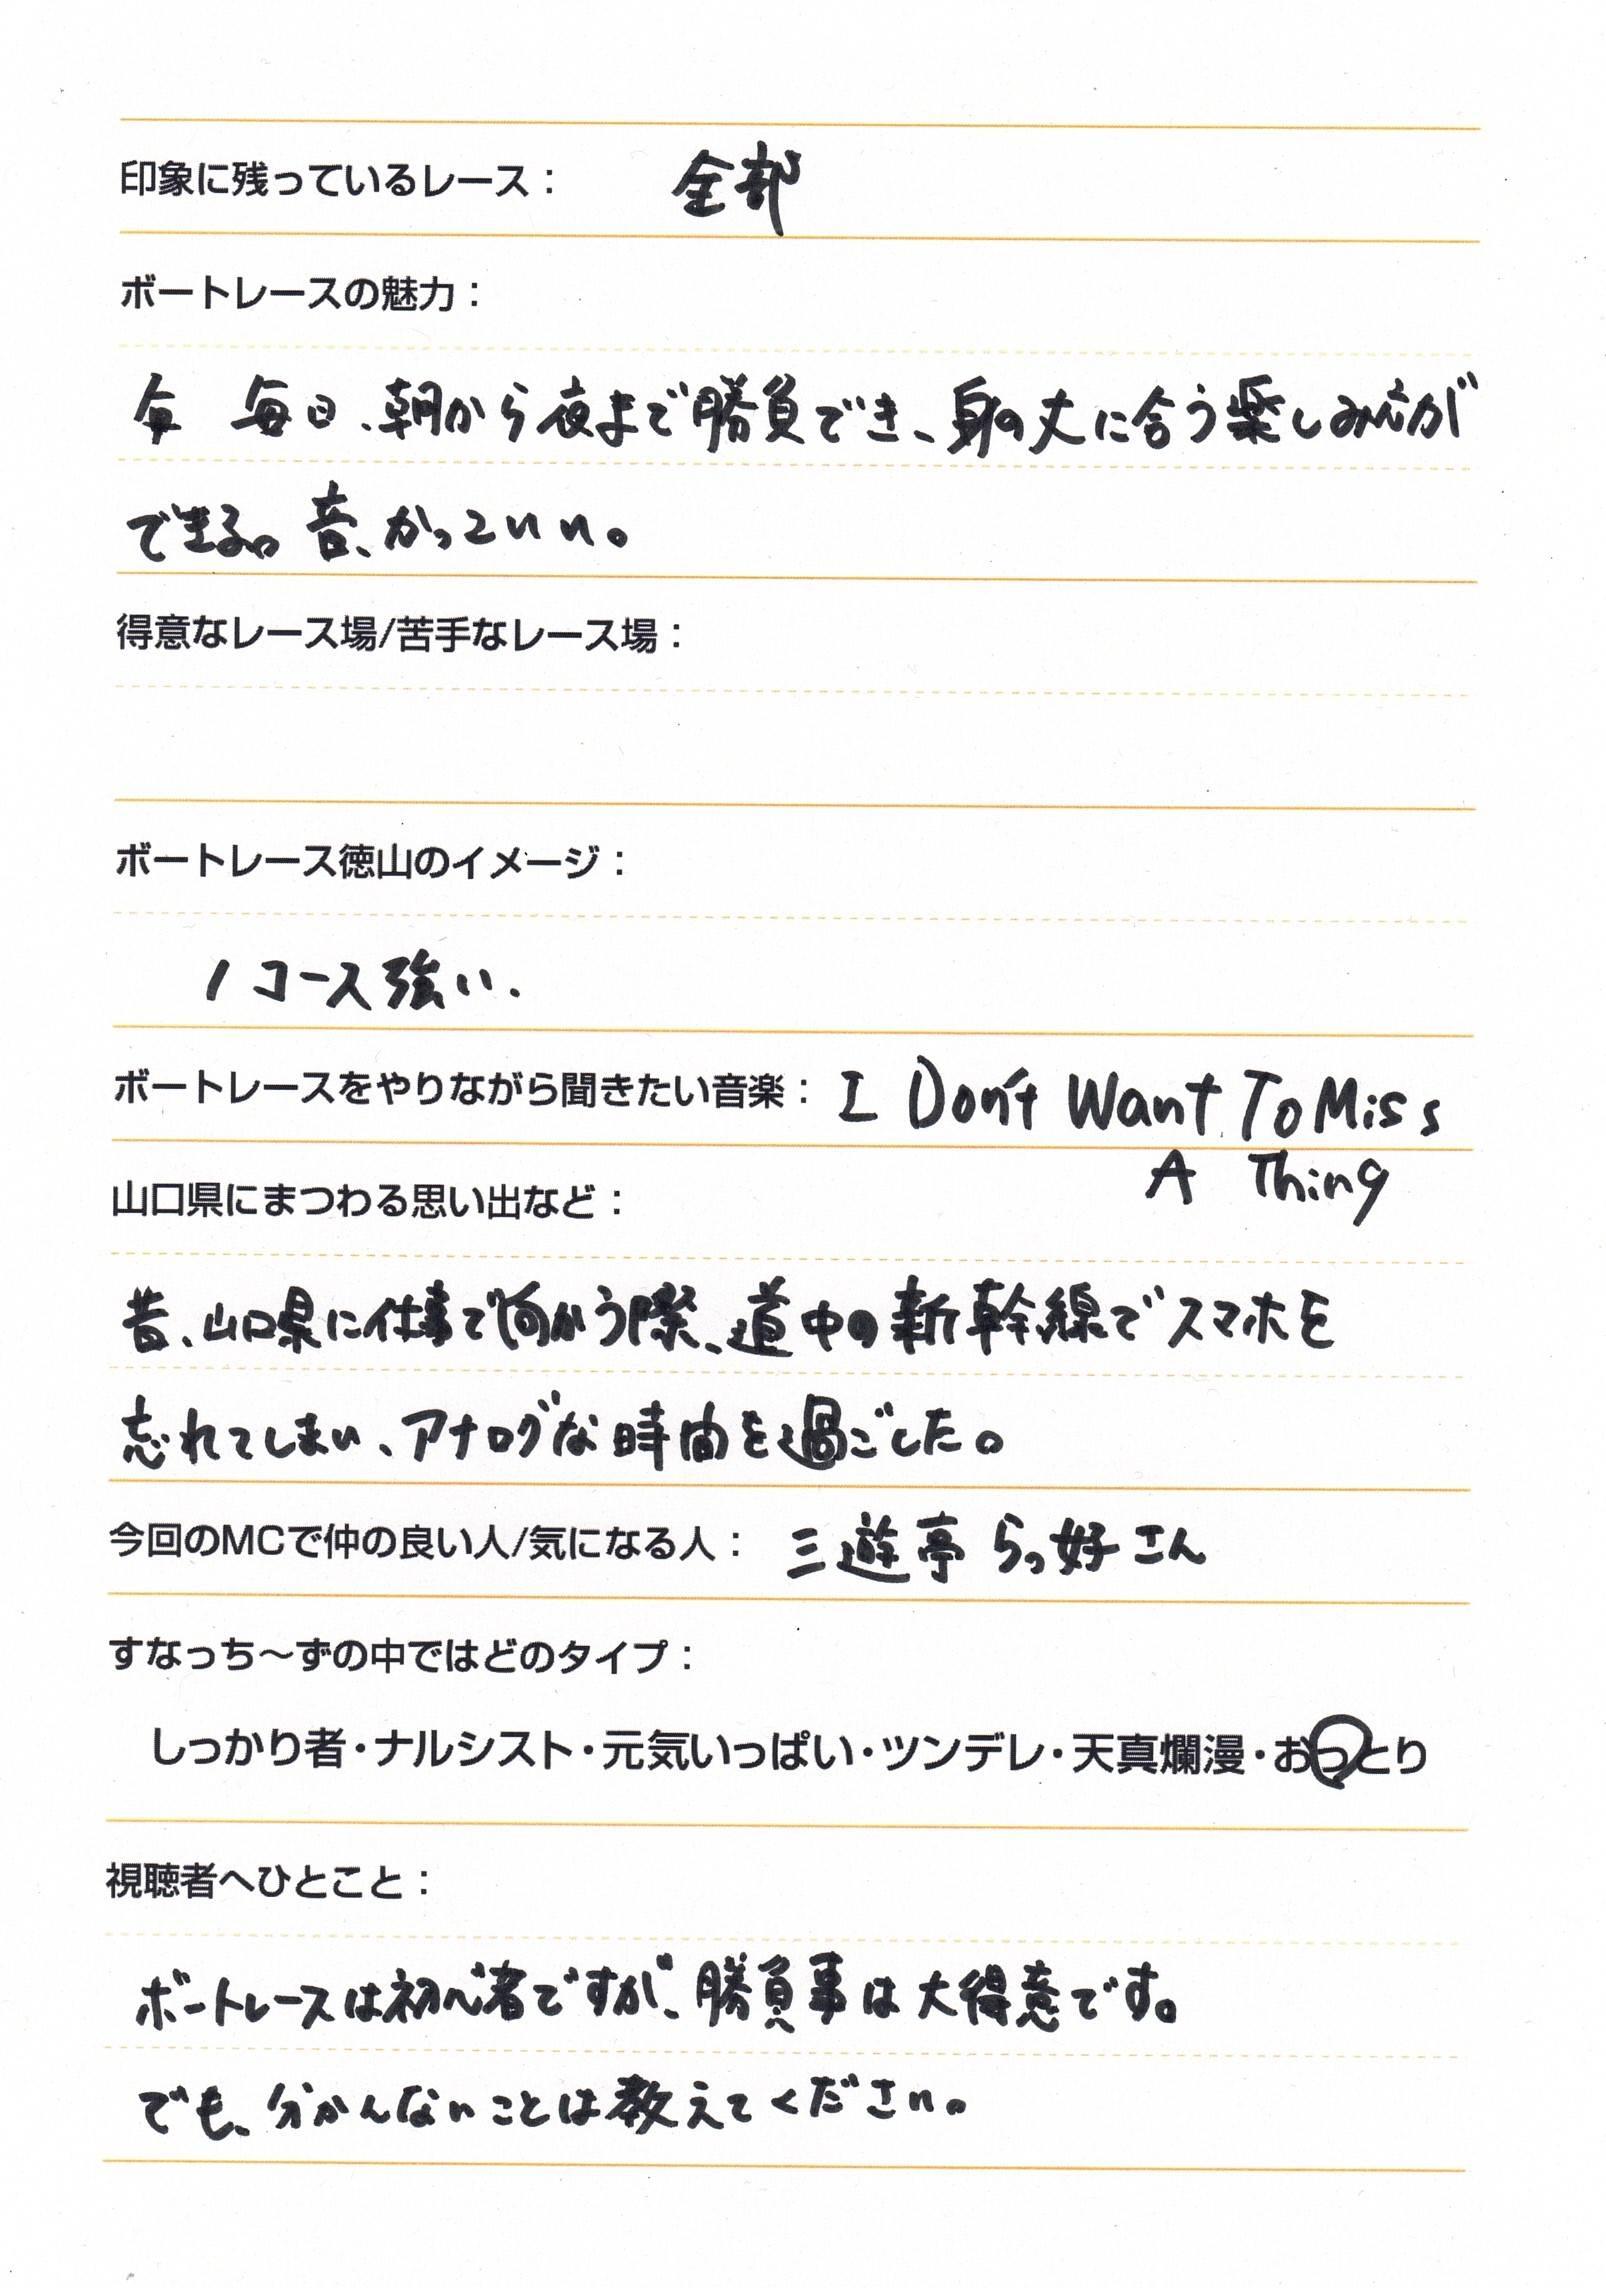 印象に残っているレース： 全部
ボートレースの魅力：
毎 毎日、朝から夜まで勝負でき、身の丈に合う楽しみ方が
できる。音、かっこいい。
得意なレース場/苦手なレース場：
ボートレース徳山のイメージ：
1コース強い.
ボートレースをやりながら聞きたい音楽： I Don't Want To Miss
A Thing
山口県にまつわる思い出など：
昔、山口県に仕事で向かう際、道中の新幹線でスマホを
忘れてしまい、アナログな時間を過ごした。
今回のMCで仲の良い人/気になる人： 三遊亭らっ好さん
すなっち～ずの中ではどのタイプ：
しっかり者・ナルシスト・元気いっぱい・ツンデレ・天真爛漫・おっとり
視聴者へひとこと：
ボートレースは初心者ですが、勝負事は大得意です。
でも、分かんないことは教えてください。